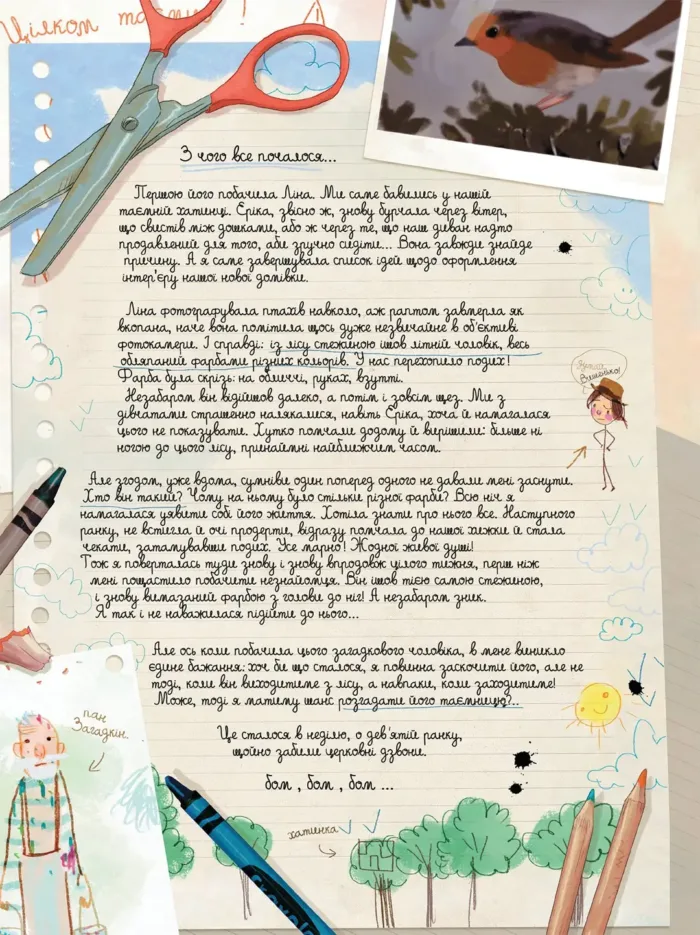 Цілком таємно!
З чого все почалося...
Першою його побачила Ліна. Ми саме бавились у нашій
таємній хатинці. Еріка, звісно ж, знову бурчала через вітер,
що свистів між дошками, або ж через те, що наш диван надто
продавлений для того, аби зручно сидіти... Вона завжди знайде
причину. А я саме завершувала список ідей щодо оформлення
інтер'єру нашої нової домівки.
Ліна фотографувала птахів навколо, аж раптом завмерла як
вкопана, наче вона помітила щось дуже незвичайне в об'єктиві
фотокамери. І справді: із лісу стежиною ішов літній чоловік, весь
обляпаний фарбами різних кольорів. У нас перехопило подих!
Фарба була скрізь: на обличчі, руках, взутті.
Незабаром він відійшов далеко, а потім і зовсім щез. Ми з
дівчатами страшенно налякалися, навіть Еріка, хоча й намагалася
цього не показувати. Хутко помчали додому й вирішили: більше ні
ногою до цього лісу, принаймні найближчим часом.
Вишенько!
Але згодом, уже вдома, сумніви один поперед одного не давали мені заснути.
Хто він такий? Чому на ньому було стільки різної фарби? Всю ніч я
намагалася уявити собі його життя. Хотіла знати про нього все. Наступного
ранку, не встигла й очі продерти, відразу помчала до нашої хижки й стала
чекати, затамувавши подих. Усе марно! Жодної живої душі!
Тож я поверталась туди знову і знову впродовж цілого тижня, перш ніж
мені пощастило побачити незнайомця. Він ішов тією самою стежиною,
і знову вимазаний фарбою з голови до ніг! А незабаром зник.
Я так і не наважилася підійти до нього...
Але ось коли побачила цього загадкового чоловіка, в мене виникло
єдине бажання: хоч би що сталося, я повинна заскочити його, але не
тоді, коли він виходитиме з лісу, а навпаки, коли заходитиме!
Може, тоді я матиму шанс розгадати його таємницю?..
пан
Загадкін
Це сталося в неділю, о дев'ятій ранку,
щойно забили церковні дзвони.
бом , бом , бом ...
хатинка
Crayola